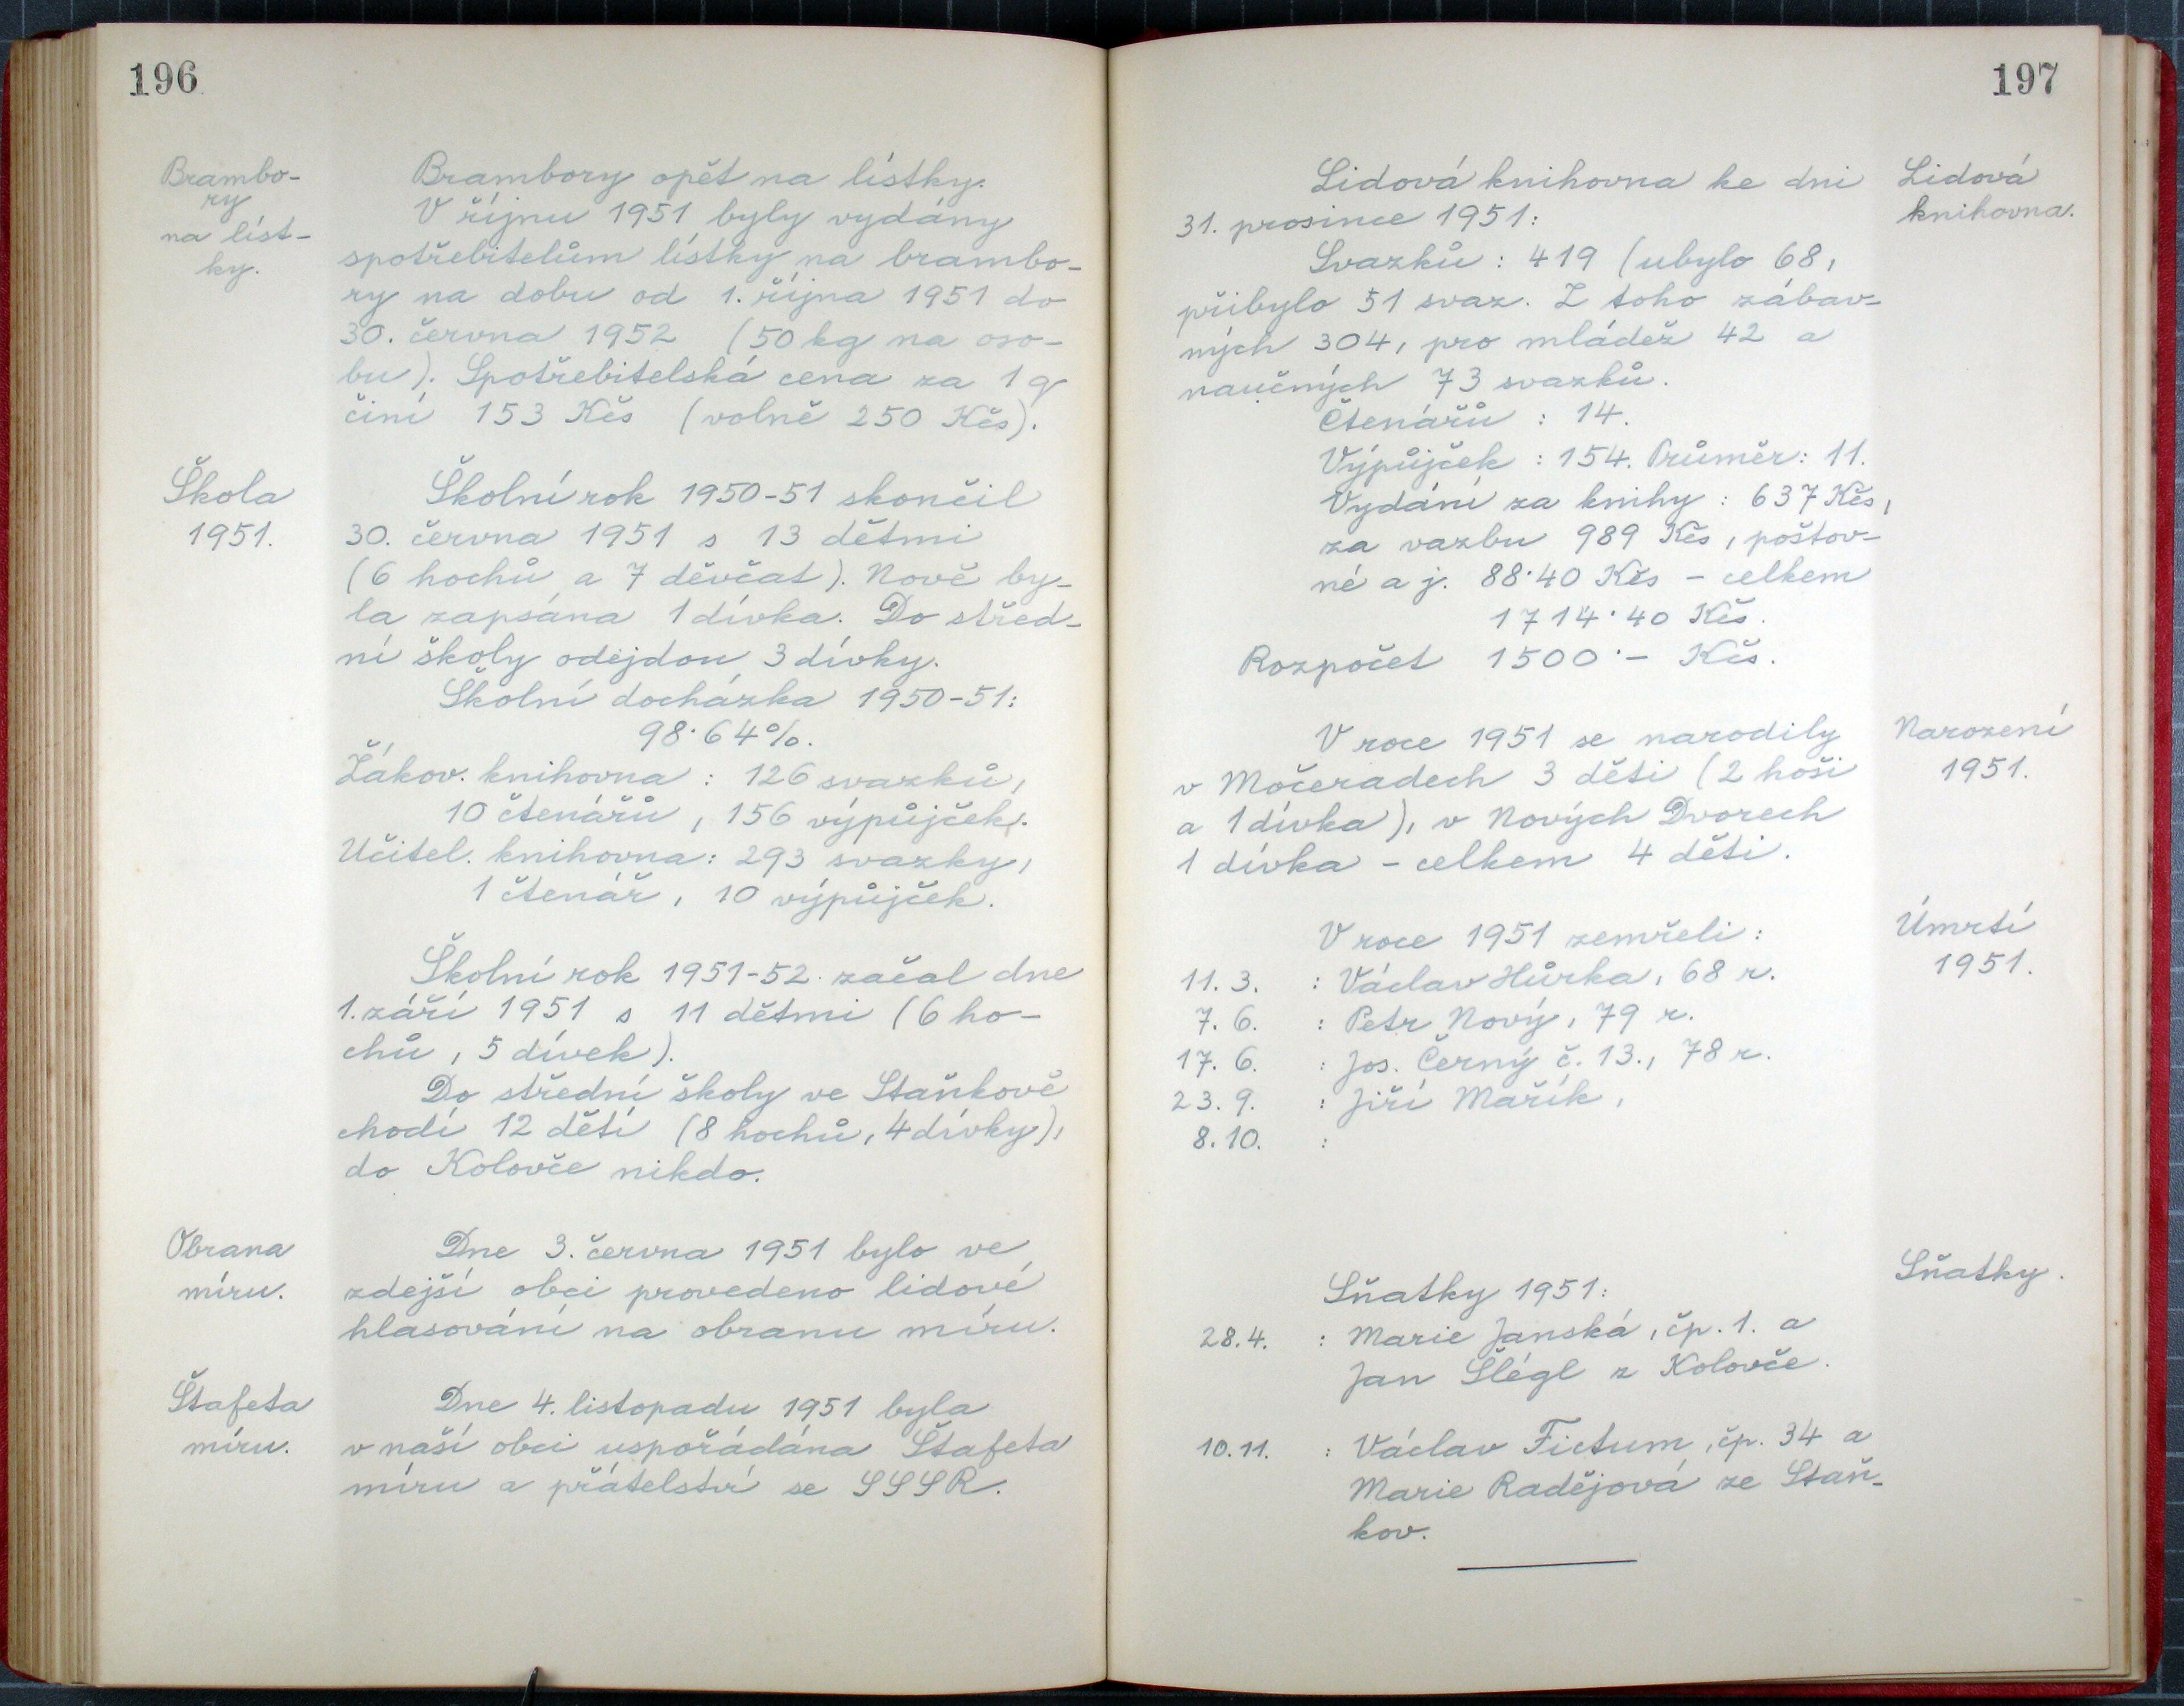 196
Brambo-
ry
na líst-
ky.
Brambory opět na lístky.
V říjnu 1951 byly vydány
spotřebitelům lístky na brambo-
ry na dobu od 1. října 1951 do
30. června 1952 (50 kg na oso-
bu). Spotřebitelská cena za 1 q
činí 153 Kčs (volně 250 Kčs).
Škola
1951.
Školní rok 1950-51 skončil
30. června 1951 s 13 dětmi
(6 hochů a 7 děvčat). Nově by-
la zapsána 1 dívka. Do střed-
ní školy odejdou 3 dívky.
Školní docházka 1950-51:
98·64%.
Žákov. knihovna: 126 svazků,
10 čtenářů, 156 výpůjček.
Učitel. knihovna: 293 svazky,
1 čtenář, 10 výpůjček.
Školní rok 1951-52 začal dne
1. září 1951 s 11 dětmi (6 ho-
chů, 5 dívek).
Do střední školy ve Staňkově
chodí 12 dětí (8 hochů, 4 dívky),
do Kolovče nikdo.
Obrana
míru.
Dne 3. června 1951 bylo ve
zdejší obci provedeno lidové
hlasování na obranu míru.
Štafeta
míru.
Dne 4. listopadu 1951 byla
v naší obci uspořádána Štafeta
míru a přátelství se SSSR.
197
Lidová
knihovna.
Lidová knihovna ke dni
31. prosince 1951:
Svazků: 419 (ubylo 68,
přibylo 51 svaz. Z toho zábav-
ných 304, pro mládež 42 a
naučných 73 svazků.
Čtenářů: 14.
Výpůjček: 154. Průměr: 11.
Vydání za knihy: 637 Kčs,
za vazbu 989 Kčs, poštov-
né a j. 88·40 Kčs - celkem
1714·40 Kčs.
Rozpočet 1500·- Kčs.
Narození
1951.
V roce 1951 se narodily
v Močeradech 3 děti (2 hoši
a 1 dívka), v Nových Dvorech
1 dívka - celkem 4 děti.
Úmrtí
1951.
V roce 1951 zemřeli:
11. 3. : Václav Hůrka, 68 r.
7. 6. : Petr Nový, 79 r.
17. 6. : Jos. Černý č. 13., 78 r.
23. 9. : Jiří Mařík,
8. 10. :
Sňatky.
Sňatky 1951:
28. 4. : Marie Janská, čp. 1. a
Jan Šlégl z Kolovče.
10. 11. : Václav Fictum, čp. 34 a
Marie Radějová ze Staň-
kov.